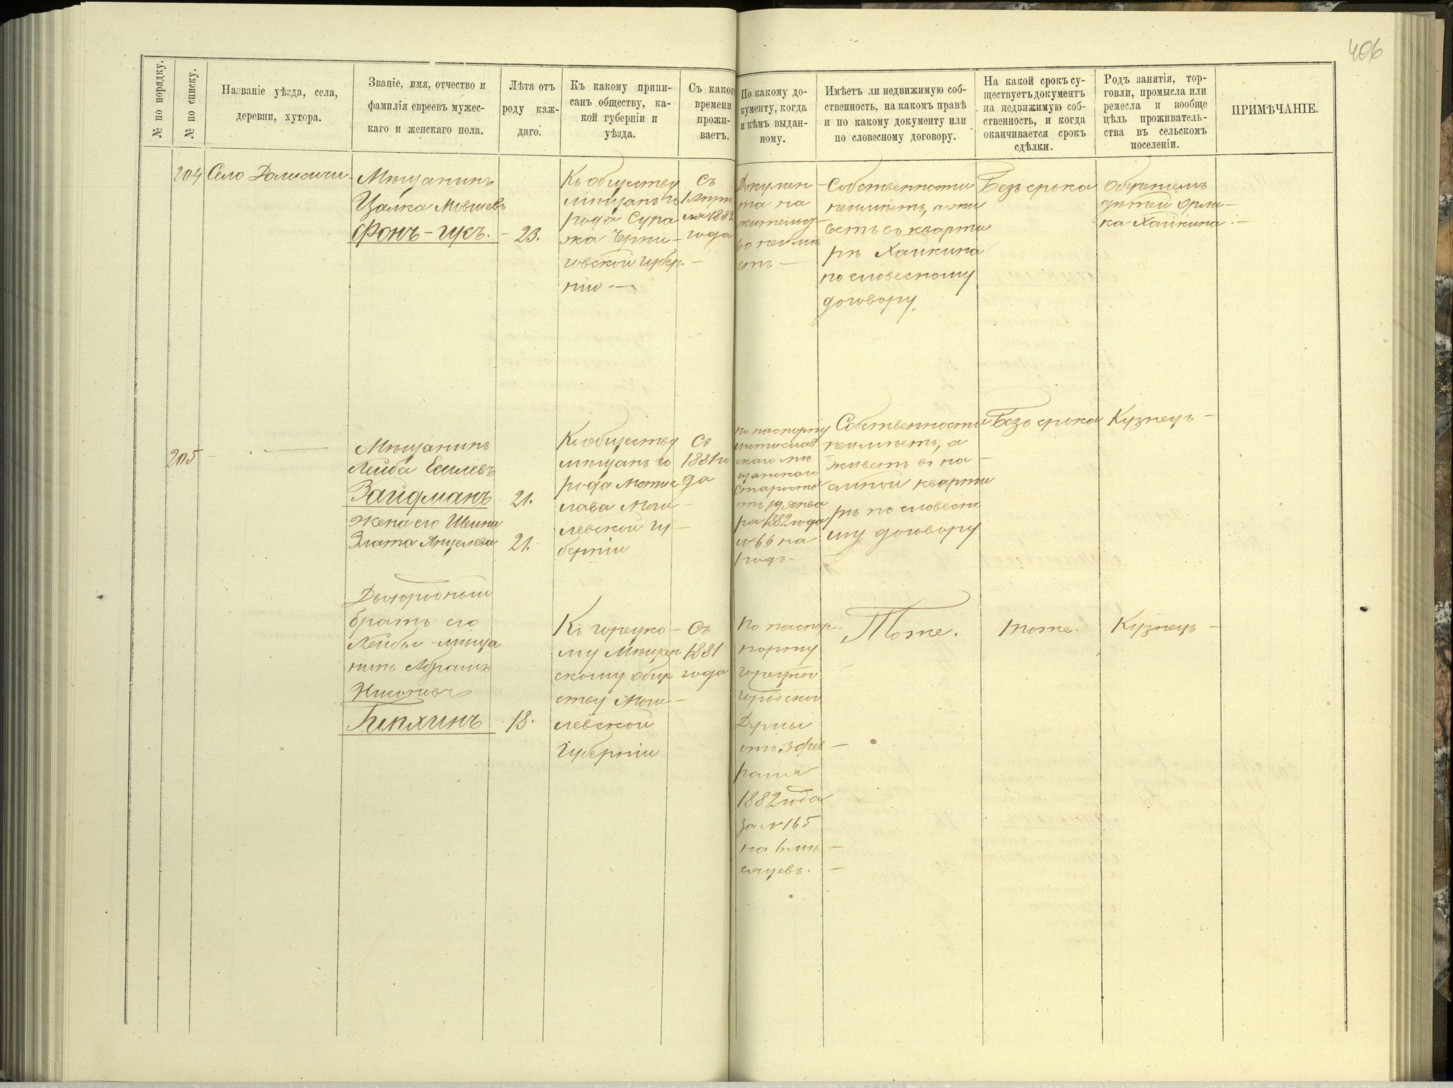 406
№ по порядку.
№ по списку.
Названіе уѣзда, села,
деревни, хутора.
Званіе, имя, отчество и
фамилія евреевъ мужес-
каго и женскаго пола.
Лѣта отъ
роду каж-
даго.
Къ какому припи-
санъ обществу, ка-
кой губерніи и
уѣзда.
Съ какого
времени
прожи-
ваетъ.
По какому до-
кументу, когда
и кѣмъ выдан-
ному.
Имѣетъ ли недвижимую соб-
ственность, на какомъ правѣ
и по какому документу или
по словесному договору.
На какой срокъ су-
ществуетъ документъ
на недвижимую соб-
ственность, и когда
оканчивается срокъ
сдѣлки.
Родъ занятія, тор-
говли, промысла или
ремесла и вообще
цѣль проживатель-
ства въ сельскомъ
поселеніи.
ПРИМѢЧАНІЕ.
204
Село
Мѣщанинъ
Цалка Мовшевъ
Фонъ-Гусъ.
23.
Къ обществу
мѣщанъ го
рода Сура
жа Черни-
говской губер-
ніи
Съ
1882
года
Докумен
та на
жительст
во неимѣ
етъ
Собственности
неимѣетъ, а жи
ветъ въ кварти
рѣ Хайкина
по словесному
договору.
Безъ срока
дѣтей
ка Хайкина
205
Мѣщанинъ
Лейба
Зайдманъ
21.
жена его
Злата
21.
Къ обществу
мѣщанъ го
рода Мстис
лава Моги-
левской гу-
берніи
Съ
1881 го
да
По паспорту
мстислав
скаго мѣ
щанскаго
старосты
отъ 19 янва
ря 1882 года
№ 66 на
годъ
Собственности
неимѣетъ, а
живетъ въ на-
емной кварти
рѣ по словесно
му договору
Безъ срока
Кузнецъ
Двоюродный
братъ его
Лейбы мѣща
нинъ Абрамъ
18.
Къ горецко-
му Мѣщан
скому обще
ству Моги-
левской
Губерніи
Съ
1881
года
По паспор-
порту
горецкой
городской
Думы
отъ 3 фев-
раля
1882 года
за № 165
на 6 мѣ-
сяцевъ.
Тоже.
тоже.
Кузнецъ